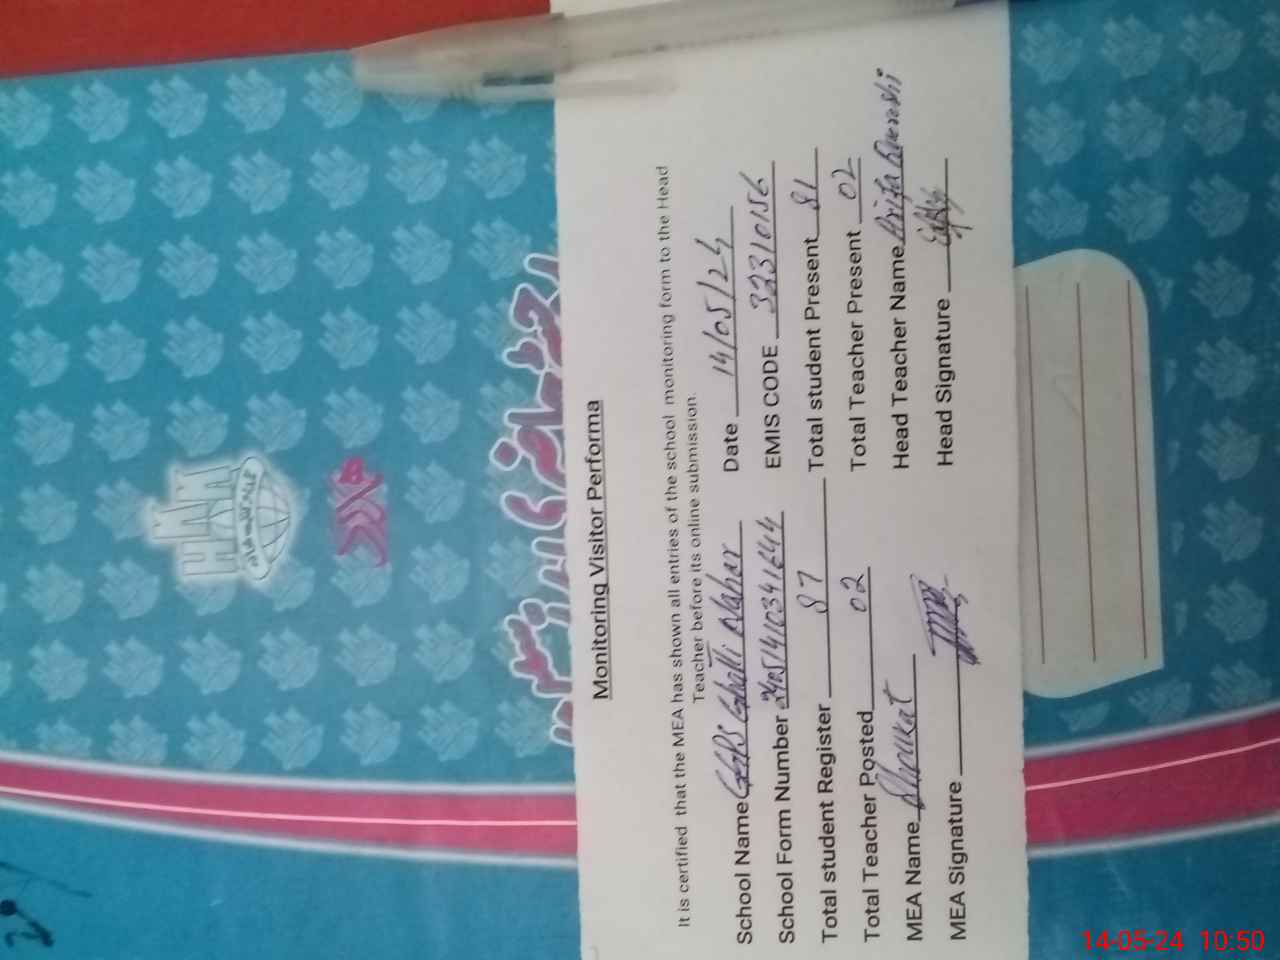 Monitoring Visitor Performa
It is certified that the MEA has shown all entries of the school monitoring form to the Head
Teacher before its online submission.
School Name Ghatti Nahar Date 14/05/24
School Form Number EMIS CODE 32310156
Total student Register 87 Total student Present 81
Total Teacher Posted 02 Total Teacher Present 02
MEA Name Shoukat Head Teacher Name
MEA Signature Head Signature
14-05-24 10:50